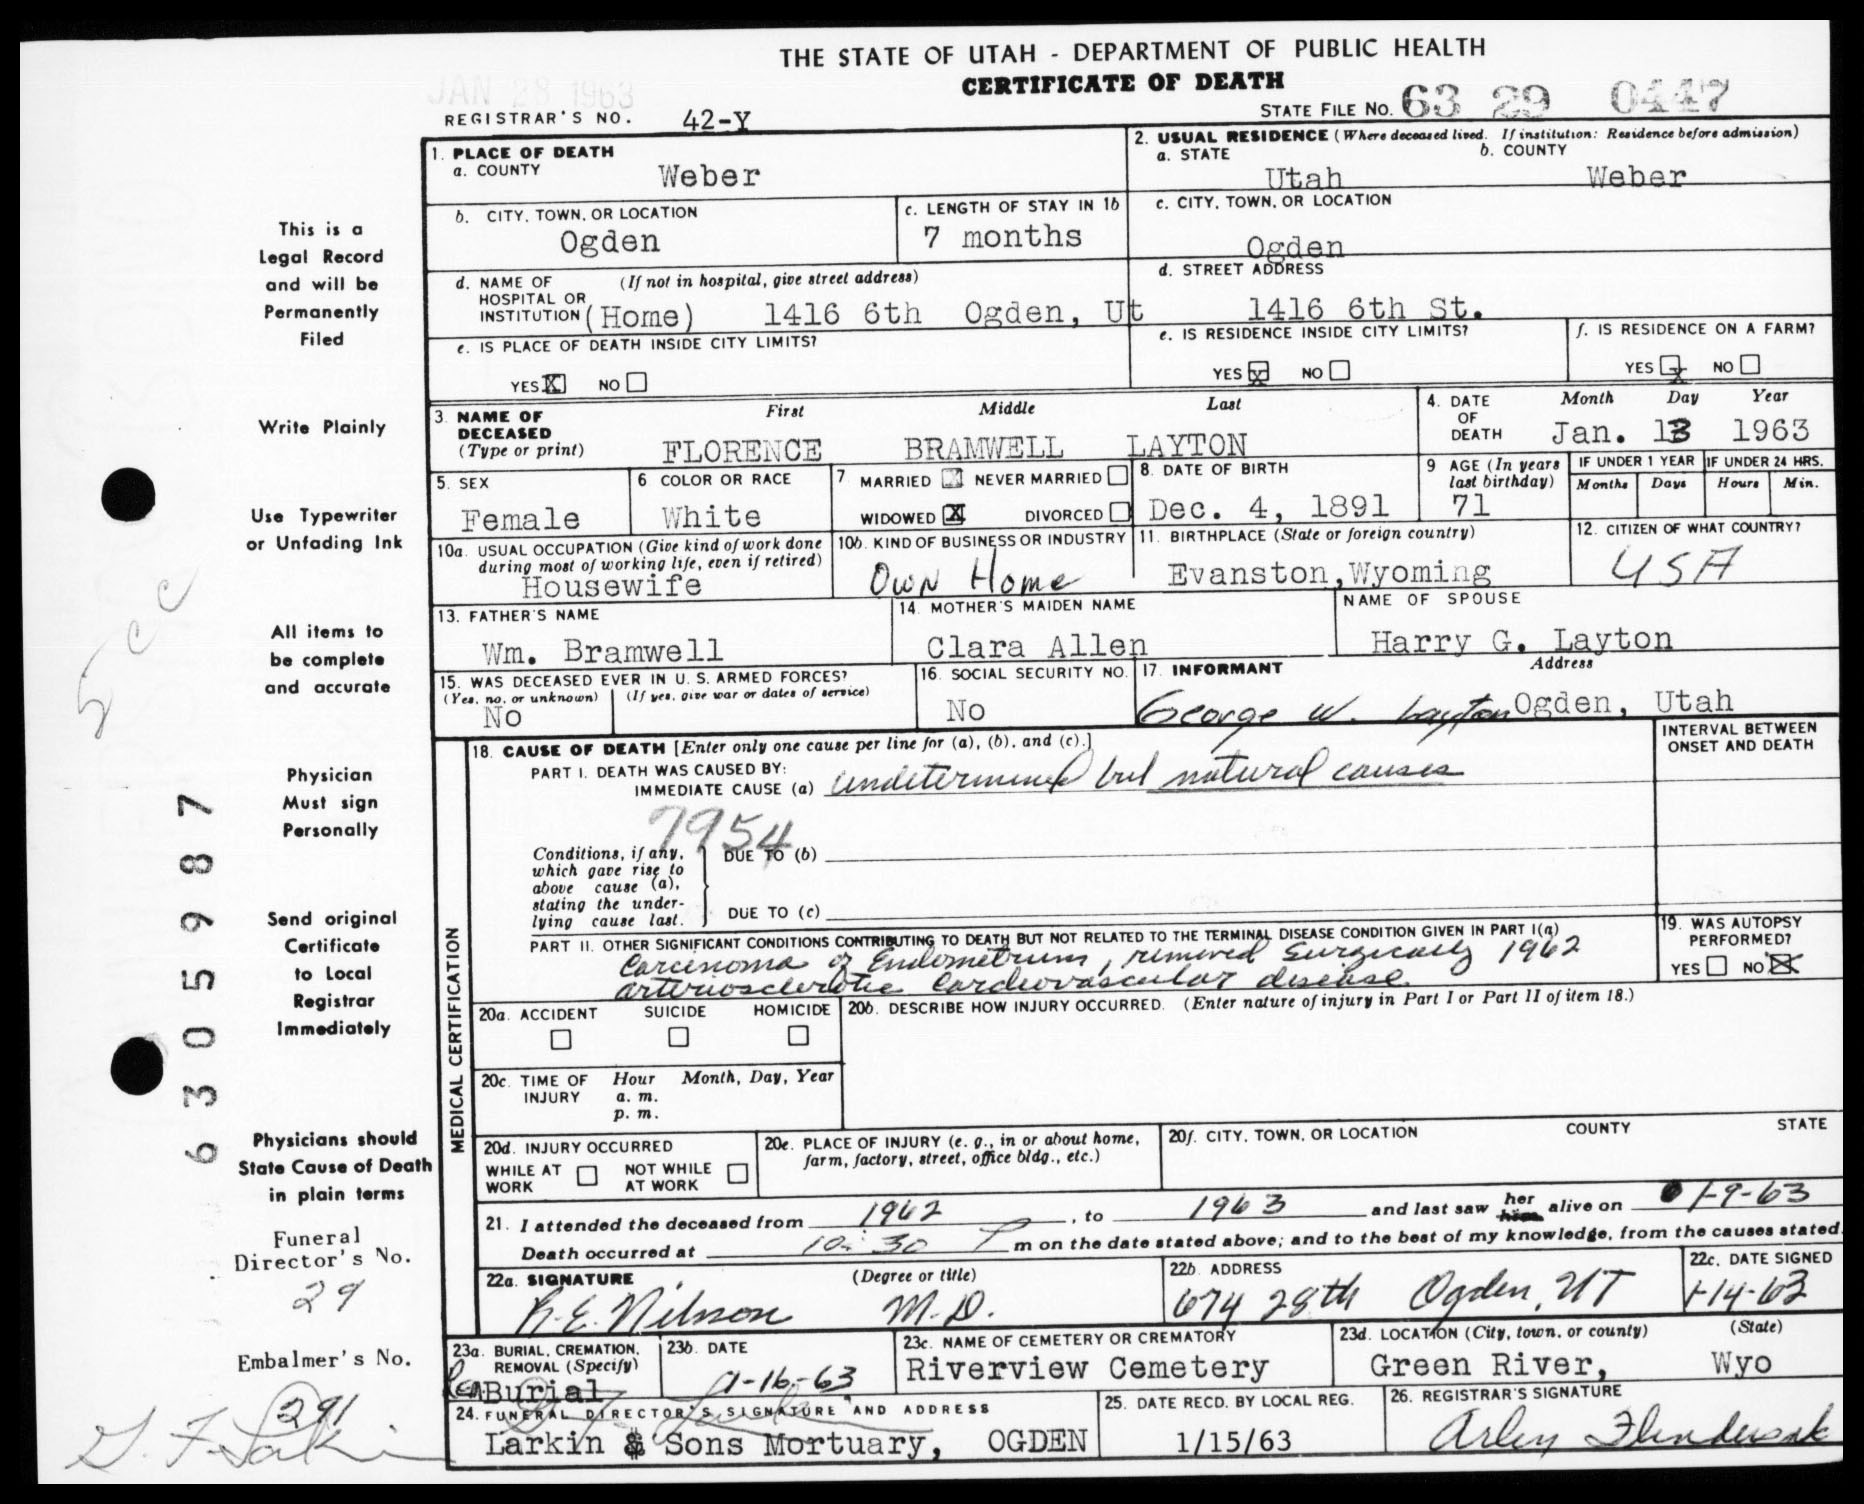 THE STATE OF UTAH - DEPARTMENT OF PUBLIC HEALTH
CERTIFICATE OF DEATH
JAN 28 1963
REGISTRAR'S NO. 42-Y
STATE FILE NO. 63 29 0447
1. PLACE OF DEATH
a. COUNTY Weber
2. USUAL RESIDENCE (Where deceased lived. If institution: Residence before admission)
a. STATE Utah b. COUNTY Weber
b. CITY, TOWN, OR LOCATION Ogden
c. LENGTH OF STAY IN 1b 7 months
c. CITY, TOWN, OR LOCATION Ogden
d. NAME OF HOSPITAL OR INSTITUTION (If not in hospital, give street address)
(Home) 1416 6th Ogden, Ut
d. STREET ADDRESS 1416 6th St.
e. IS PLACE OF DEATH INSIDE CITY LIMITS?
YES X NO
e. IS RESIDENCE INSIDE CITY LIMITS?
YES X NO
f. IS RESIDENCE ON A FARM?
YES X NO
3. NAME OF DECEASED (Type or print)
First Middle Last
FLORENCE BRAMWELL LAYTON
4. DATE OF DEATH Month Day Year
Jan. 13 1963
5. SEX Female
6 COLOR OR RACE White
7. MARRIED NEVER MARRIED
WIDOWED X DIVORCED
8. DATE OF BIRTH Dec. 4, 1891
9 AGE (In years last birthday) 71
IF UNDER 1 YEAR Months Days
IF UNDER 24 HRS. Hours Min.
10a. USUAL OCCUPATION (Give kind of work done during most of working life, even if retired)
Housewife
10b. KIND OF BUSINESS OR INDUSTRY
Own Home
11. BIRTHPLACE (State or foreign country)
Evanston, Wyoming
12. CITIZEN OF WHAT COUNTRY?
USA
13. FATHER'S NAME
Wm. Bramwell
14. MOTHER'S MAIDEN NAME
Clara Allen
NAME OF SPOUSE
Harry G. Layton
15. WAS DECEASED EVER IN U. S. ARMED FORCES?
(Yes, no, or unknown) (If yes, give war or dates of service)
No
16. SOCIAL SECURITY NO.
No
17. INFORMANT Address
George W. Layton Ogden, Utah
18. CAUSE OF DEATH [Enter only one cause per line for (a), (b), and (c).]
INTERVAL BETWEEN ONSET AND DEATH
PART I. DEATH WAS CAUSED BY:
IMMEDIATE CAUSE (a) undetermined but natural causes
7954
Conditions, if any, which gave rise to above cause (a), stating the underlying cause last.
DUE TO (b)
DUE TO (c)
PART II. OTHER SIGNIFICANT CONDITIONS CONTRIBUTING TO DEATH BUT NOT RELATED TO THE TERMINAL DISEASE CONDITION GIVEN IN PART I(a)
Carcinoma of Endometrium, removed Surgically 1962
arteriosclerotic Cardiovascular disease.
19. WAS AUTOPSY PERFORMED?
YES NO X
20a. ACCIDENT SUICIDE HOMICIDE
20b. DESCRIBE HOW INJURY OCCURRED. (Enter nature of injury in Part I or Part II of item 18.)
20c. TIME OF INJURY Hour Month, Day, Year
a. m.
p. m.
20d. INJURY OCCURRED
WHILE AT WORK NOT WHILE AT WORK
20e. PLACE OF INJURY (e. g., in or about home, farm, factory, street, office bldg., etc.)
20f. CITY, TOWN, OR LOCATION COUNTY STATE
21. I attended the deceased from 1962, to 1963 and last saw her him alive on 1-9-63
Death occurred at 10:30 P m on the date stated above; and to the best of my knowledge, from the causes stated.
22a. SIGNATURE (Degree or title)
R.E. Nilson M.D.
22b. ADDRESS
674 28th Ogden, UT
22c. DATE SIGNED
1-14-63
23a. BURIAL, CREMATION, REMOVAL (Specify)
Rem Burial
23b. DATE
1-16-63
23c. NAME OF CEMETERY OR CREMATORY
Riverview Cemetery
23d. LOCATION (City, town, or county) (State)
Green River, Wyo
24. FUNERAL DIRECTOR'S SIGNATURE AND ADDRESS
Larkin & Sons Mortuary, OGDEN
25. DATE RECD. BY LOCAL REG.
1/15/63
26. REGISTRAR'S SIGNATURE
MEDICAL CERTIFICATION
This is a
Legal Record
and will be
Permanently
Filed
Write Plainly
Use Typewriter
or Unfading Ink
All items to
be complete
and accurate
Physician
Must sign
Personally
Send original
Certificate
to Local
Registrar
Immediately
Physicians should
State Cause of Death
in plain terms
Funeral
Director's No.
29
Embalmer's No.
291
G. F. Larkin
6305987